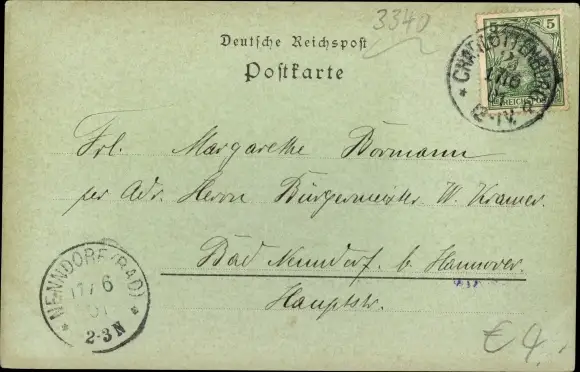 3340
Deutsche Reichspost
Postkarte
5 5
REICHSPOST
* CHARLOTTENBURG
17/6
01
12-1V.
Frl. Margarethe Bormann
per Adr. Herrn Bürgermeister W. Kramer.
Bad Nenndorf. b. Hannover.
Hauptstr.
* NENNDORF (BAD) *
17/6
01
2-3N
€ 4.